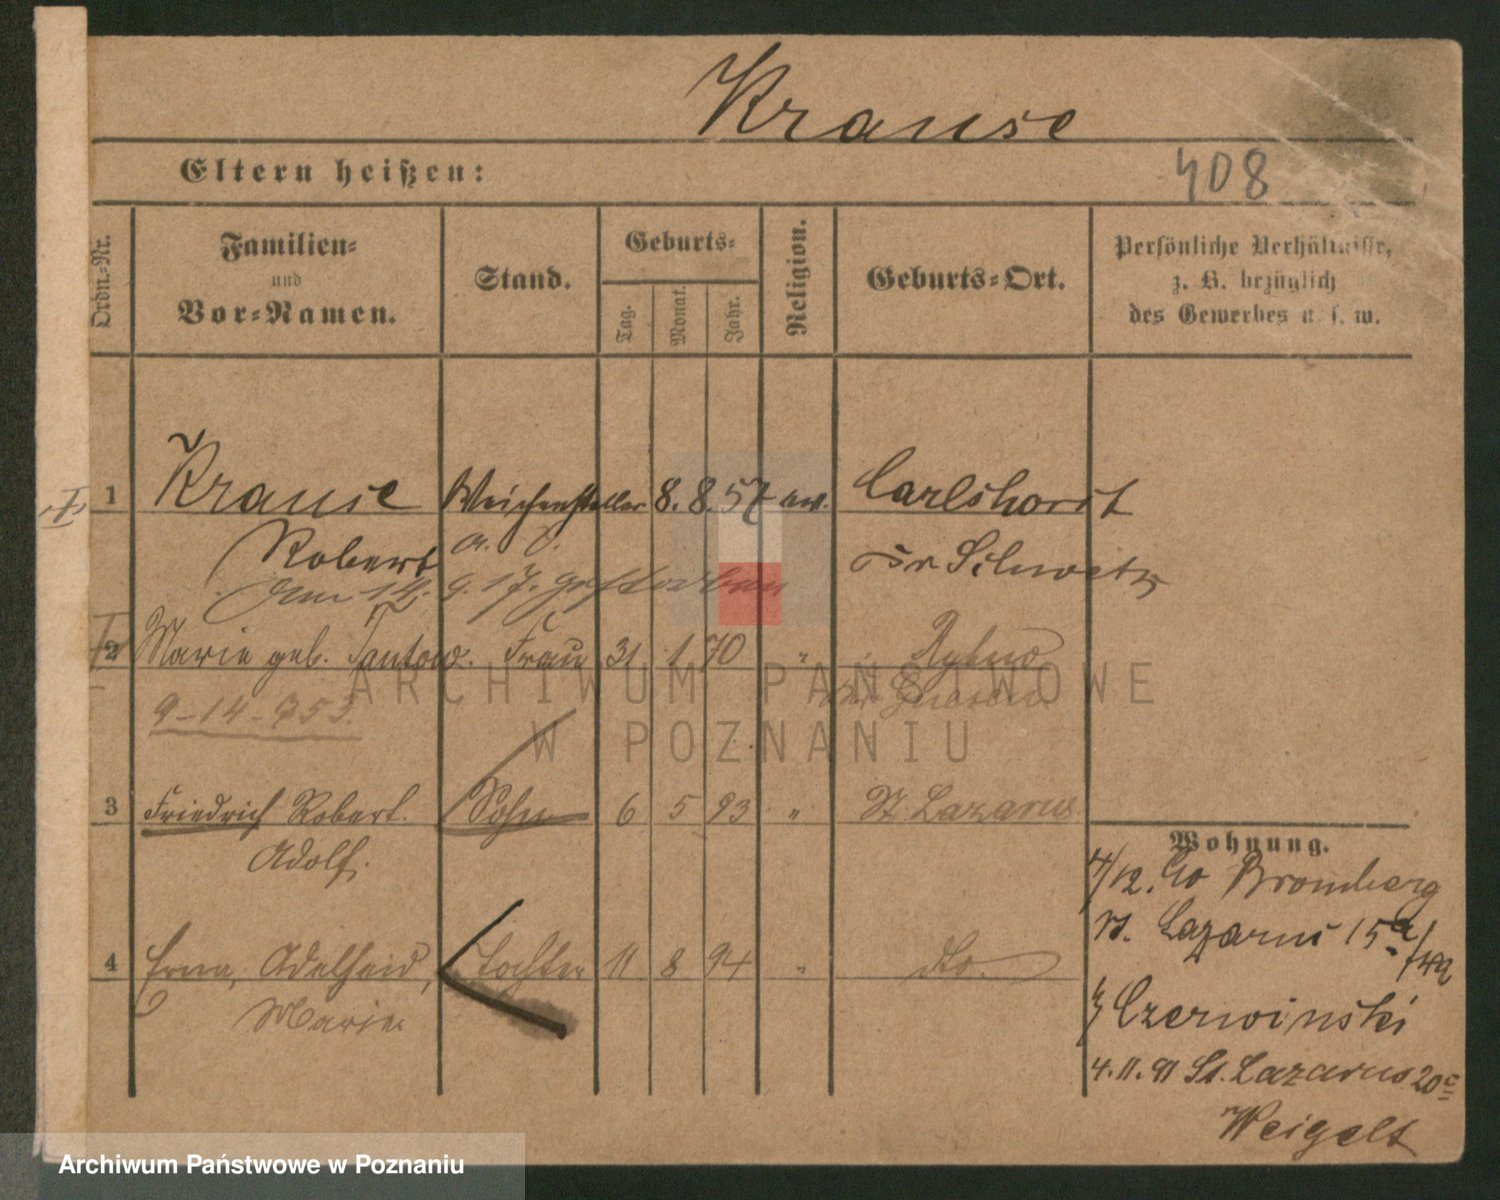 Krause
Eltern heißen:
408
Ordn.-Nr.
Familien-
und
Vor-Namen.
Stand.
Geburts-
Tag.
Monat.
Jahr.
Religion.
Geburts-Ort.
Persönliche Verhältnisse,
z. B. bezüglich
des Gewerbes u. s. w.
1 Krause Weichensteller 8. 8. 57 ev. Carlshorst
Robert a. D. Kr Schwetz
Am 14. 9. 17. gestorben
2 Marie geb. Tantow. Frau 31 1 70 "
Kr. Gnesen
9-14-353.
3 Friedrich Robert. Sohn 6 5 93 " St Lazarus
Adolf.
4 Erna, Adelheid, Tochter 11 8 94 " do.
Marie
Wohnung.
4/12. Bromberg
St. Lazarus 15a
Czerwinski
4. 11. 91 St. Lazarus 20c
Weigelt
ARCHIWUM PAŃSTWOWE
W POZNANIU
Archiwum Państwowe w Poznaniu